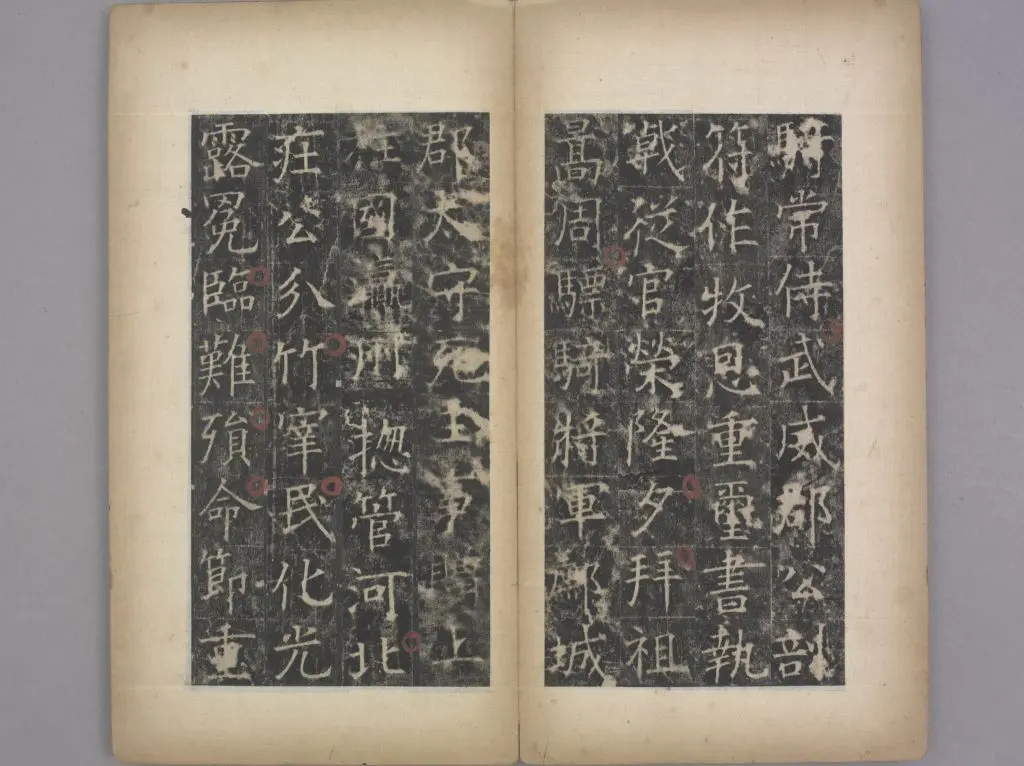 騎常侍武威郡公剖
符作牧恩重璽書執
戟從官榮隆夕拜祖
暠周驃騎將軍鄜城
郡太守死王事
柱國瀛州揔管河北
莊公分竹宰民化光
露冕臨難殞命節重